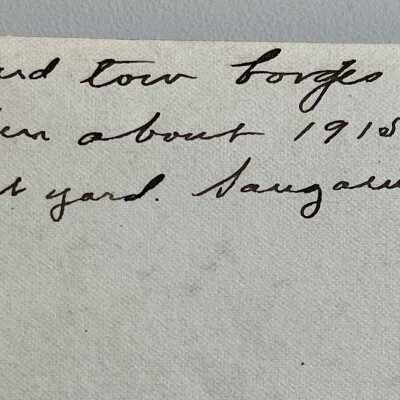 nd tow barges
en about 1915
t yard. Saugatu